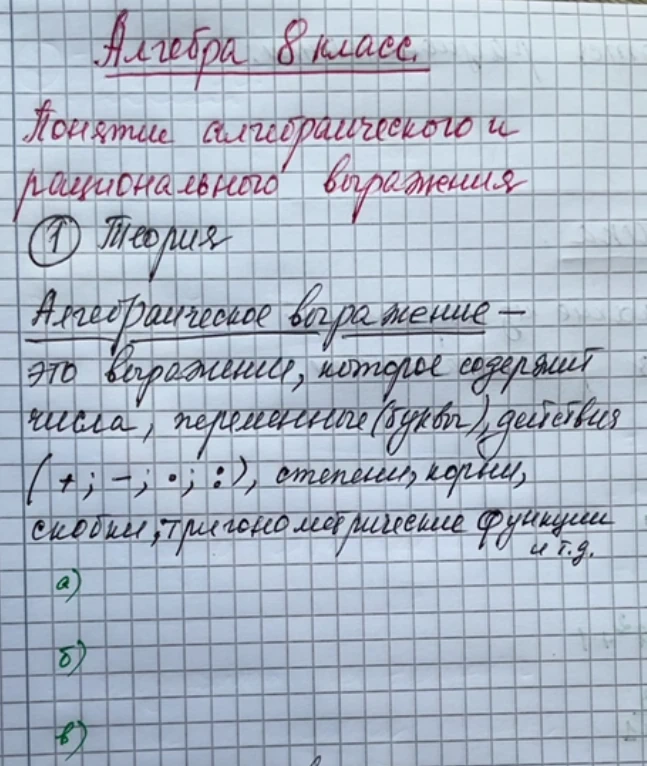 Алгебра 8 класс.
Понятие алгебраического и
рационального выражения
① Теория
Алгебраическое выражение –
это выражение, которое содержит
числа, переменные (буквы), действия
(+; –; •; :), степени, корни,
скобки, тригонометрические функции
и т.д.
а)
б)
в)